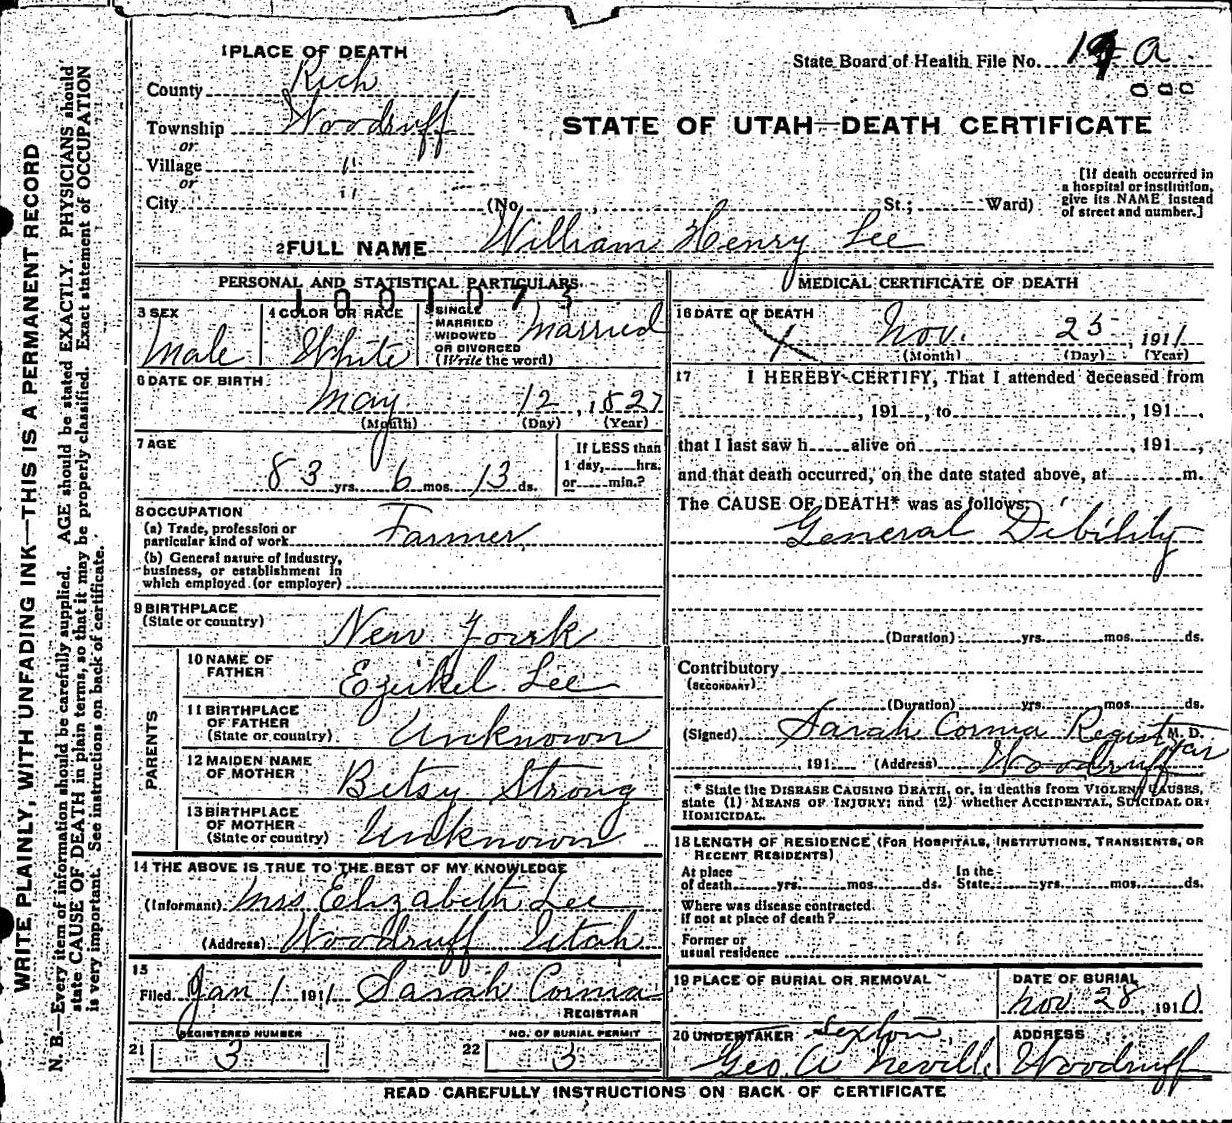 1 PLACE OF DEATH
State Board of Health File No. 19 a
County Rich
Township Woodruff
or
Village "
or
City "
(No. St.; Ward)
000
STATE OF UTAH—DEATH CERTIFICATE
[If death occurred in
a hospital or institution,
give its NAME instead
of street and number.]
2 FULL NAME William Henry Lee
PERSONAL AND STATISTICAL PARTICULARS
1001073
3 SEX
Male
4 COLOR OR RACE
White
5 SINGLE
MARRIED
WIDOWED
OR DIVORCED
(Write the word)
Married
6 DATE OF BIRTH
May 12, 1827
(Month) (Day) (Year)
7 AGE
83 yrs. 6 mos. 13 ds.
If LESS than
1 day, hrs.
or min.?
8 OCCUPATION
(a) Trade, profession or
particular kind of work Farmer
(b) General nature of industry,
business, or establishment in
which employed (or employer)
9 BIRTHPLACE
(State or country) New Yourk
PARENTS
10 NAME OF
FATHER Ezeikel Lee
11 BIRTHPLACE
OF FATHER
(State or country) Unknown
12 MAIDEN NAME
OF MOTHER Betsy Strong
13 BIRTHPLACE
OF MOTHER
(State or country) Unknown
14 THE ABOVE IS TRUE TO THE BEST OF MY KNOWLEDGE
(Informant) Mrs Elizabeth Lee
(Address) Woodruff Utah
15
Filed Jan 1 1911 Sarah Corna
REGISTRAR
REGISTERED NUMBER
21 3
NO. OF BURIAL PERMIT
22 3
MEDICAL CERTIFICATE OF DEATH
16 DATE OF DEATH
X Nov. 25, 1911
(Month) (Day) (Year)
17 I HEREBY CERTIFY, That I attended deceased from
, 191 , to , 191 ,
that I last saw h alive on , 191 ,
and that death occurred, on the date stated above, at m.
The CAUSE OF DEATH* was as follows:
General Dibility
(Duration) yrs. mos. ds.
Contributory
(SECONDARY)
(Duration) yrs. mos. ds.
(Signed) Sarah Corna Registrar M. D.
191 (Address) Woodruff
* State the DISEASE CAUSING DEATH, or, in deaths from VIOLENT CAUSES,
state (1) MEANS OF INJURY; and (2) whether ACCIDENTAL, SUICIDAL OR
HOMICIDAL.
18 LENGTH OF RESIDENCE (FOR HOSPITALS, INSTITUTIONS, TRANSIENTS, OR
RECENT RESIDENTS)
At place
of death yrs. mos. ds.
In the
State yrs. mos. ds.
Where was disease contracted
if not at place of death?
Former or
usual residence
19 PLACE OF BURIAL OR REMOVAL
DATE OF BURIAL
Nov 28 1910
20 UNDERTAKER Sexton
Geo. A Nevill
ADDRESS
Woodruff
READ CAREFULLY INSTRUCTIONS ON BACK OF CERTIFICATE
WRITE PLAINLY, WITH UNFADING INK—THIS IS A PERMANENT RECORD
N. B.—Every item of information should be carefully supplied. AGE should be stated EXACTLY. PHYSICIANS should
state CAUSE OF DEATH in plain terms, so that it may be properly classified. Exact statement of OCCUPATION
is very important. See instructions on back of certificate.